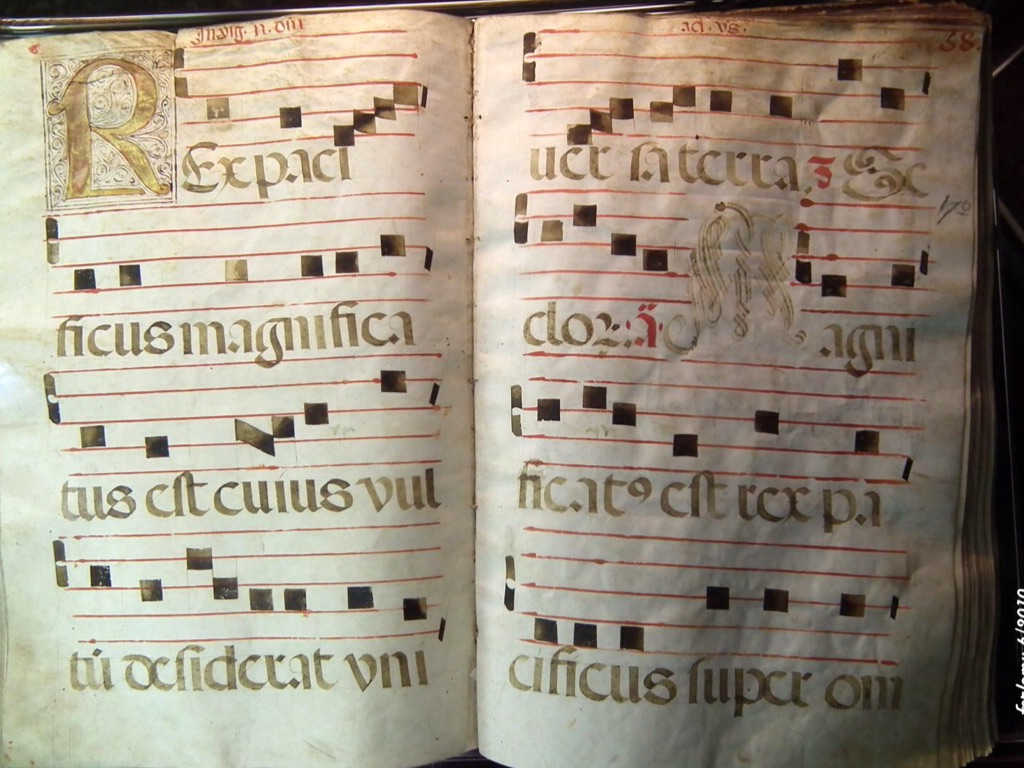 In vig. N. Dñi
REx paci
ficus magnifica
tus est cuius vul
tū desiderat vni
ad. vs.
58.
uer sa terra.
cloꝛ: ā Magni
ficatꝰ est rex pa
cificus super om